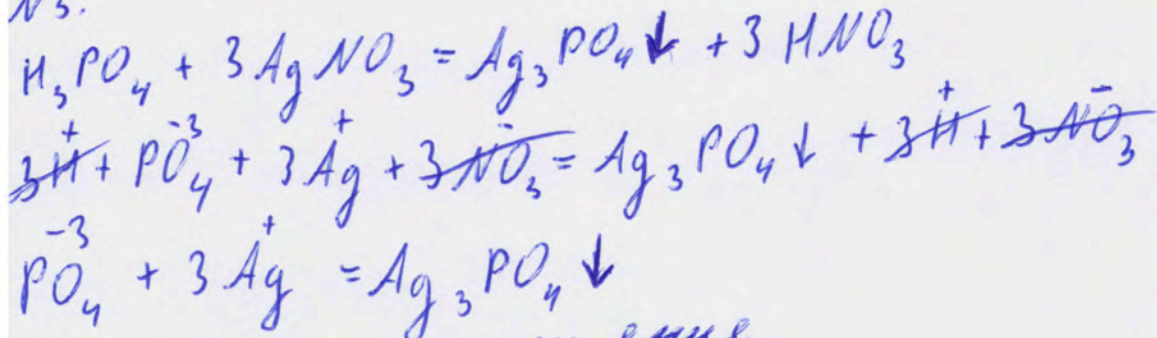 №3.
H₃PO₄ + 3AgNO₃ = Ag₃PO₄↓ + 3HNO₃
3H⁺ + PO₄⁻³ + 3Ag⁺ + 3NO₃⁻ = Ag₃PO₄↓ + 3H⁺ + 3NO₃⁻
PO₄⁻³ + 3Ag⁺ = Ag₃PO₄↓